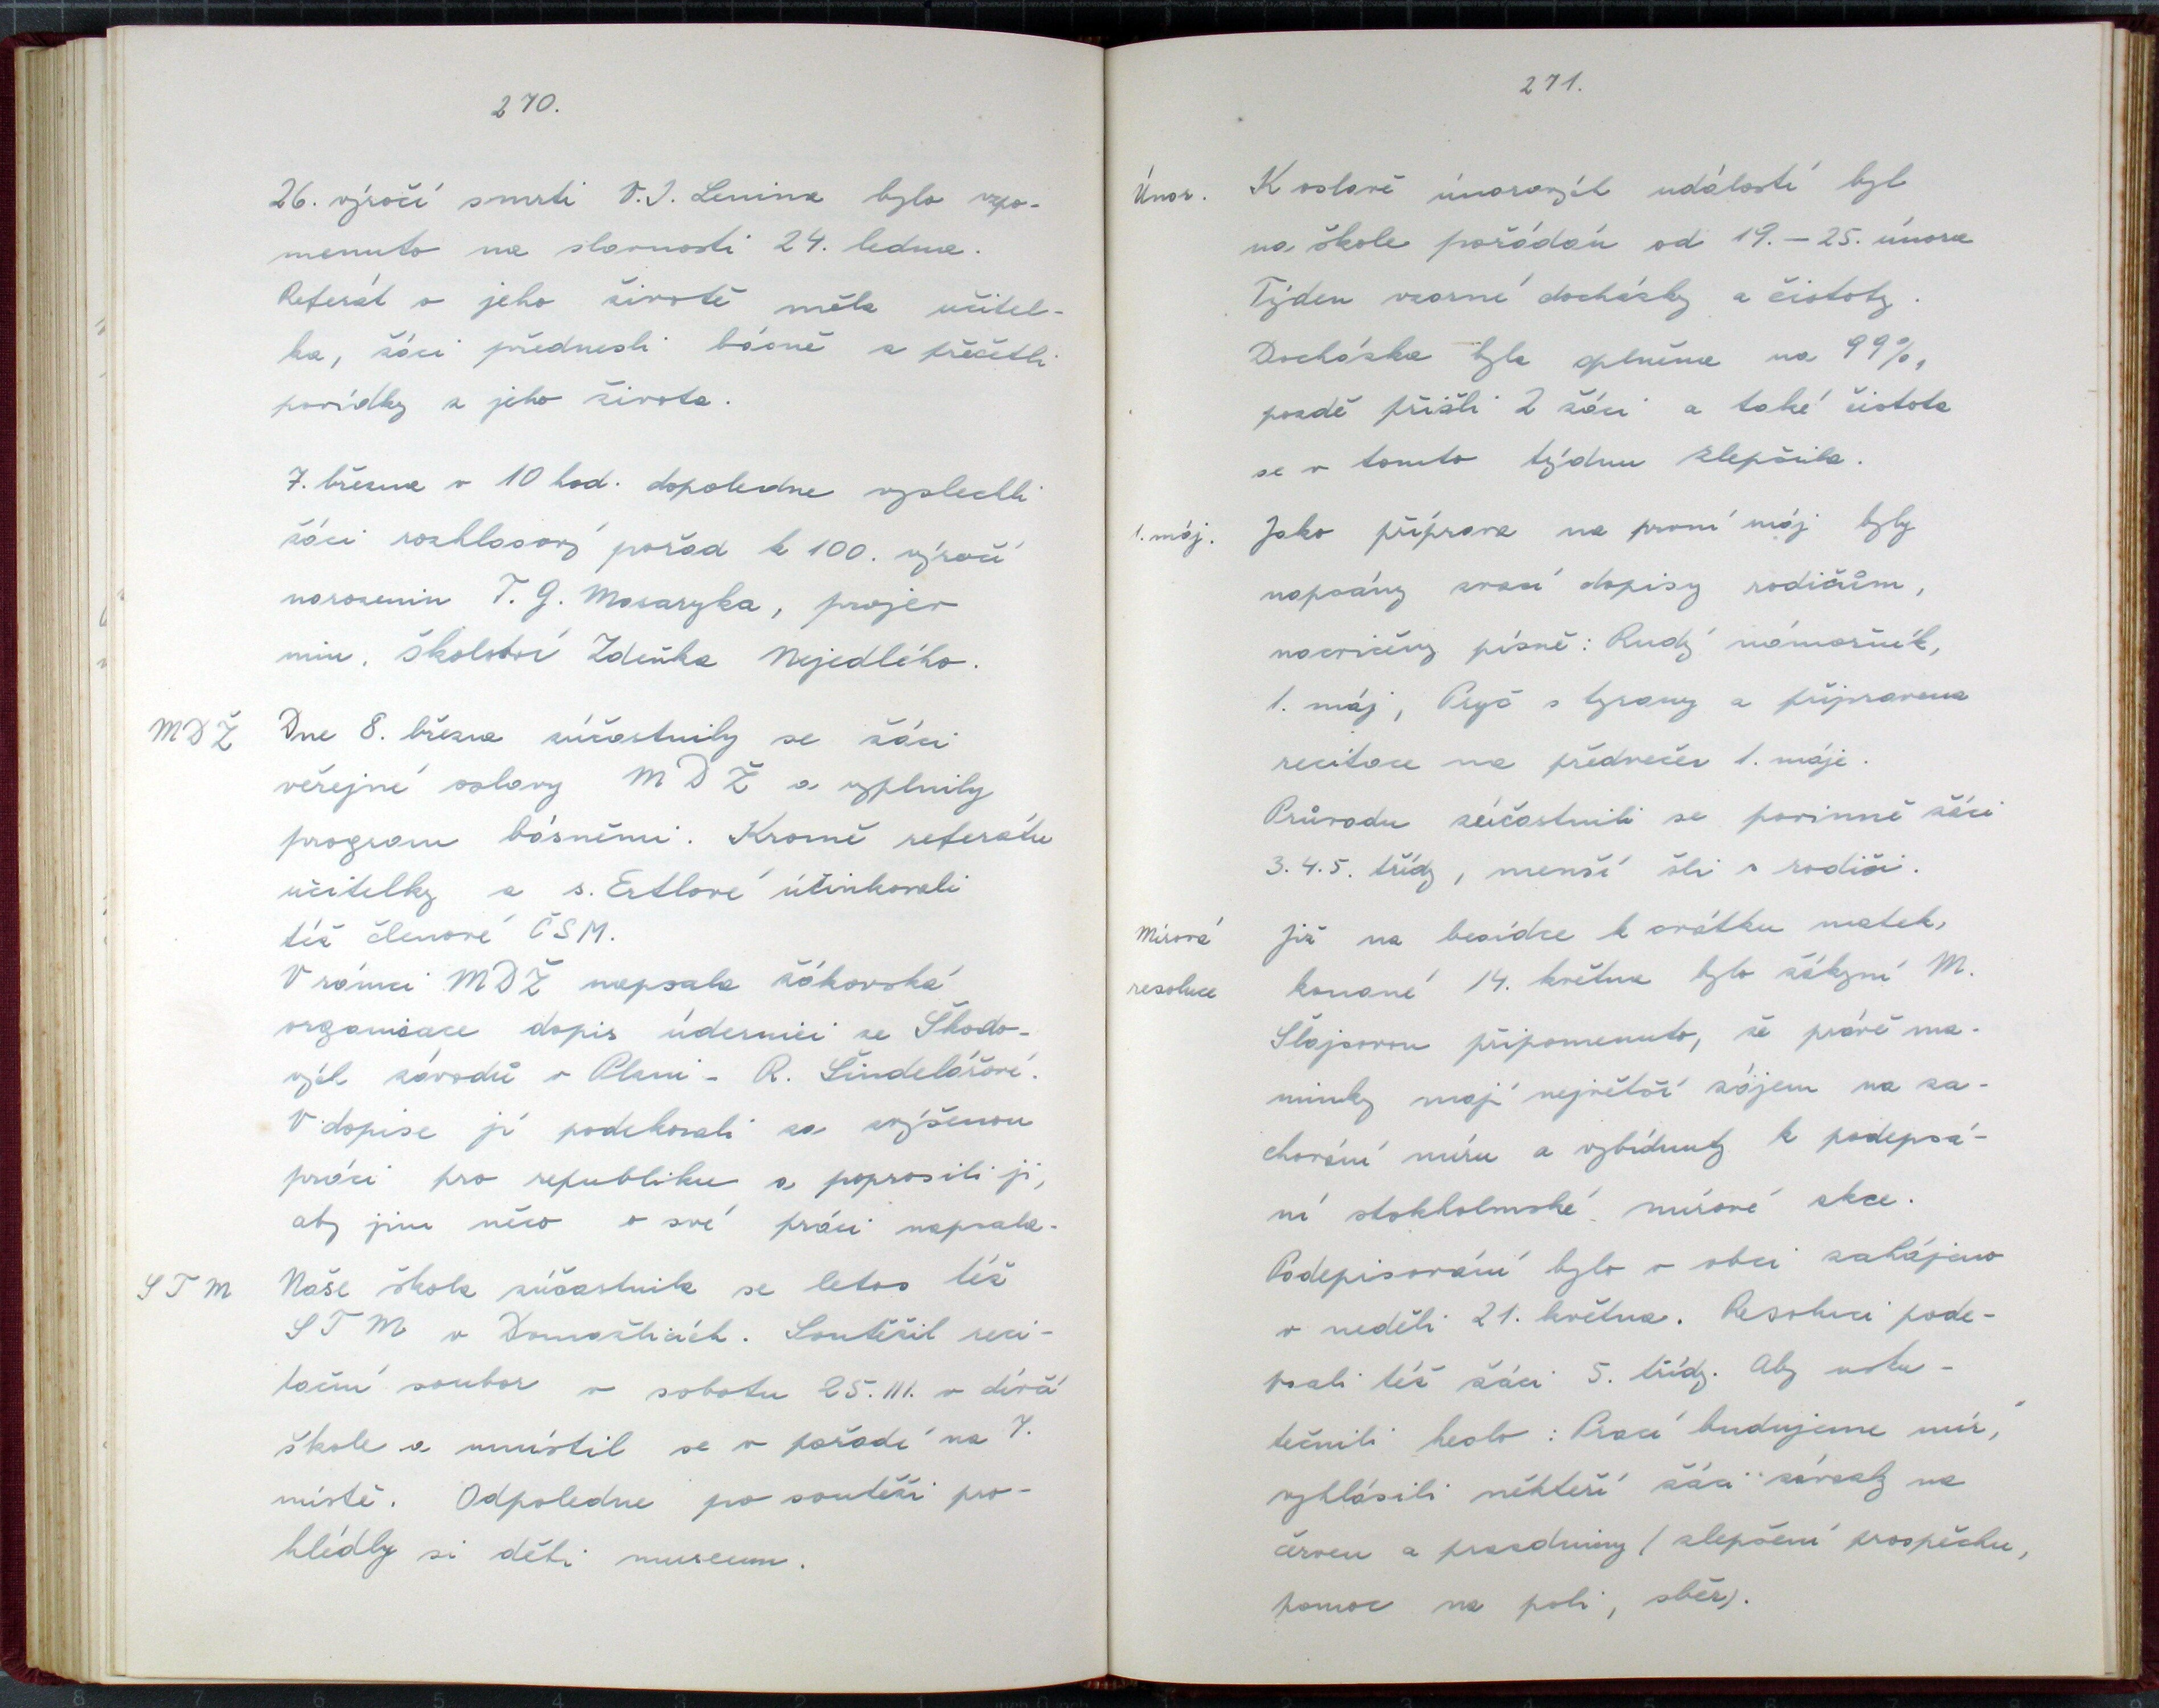 270.
26. výročí smrti V. I. Lenina bylo vzpo-
menuto na slavnosti 24. ledna.
Referát o jeho životě měla učitel-
ka, žáci přednesli básně a přečetli
povídky z jeho života.
7. března v 10 hod. dopoledne vyslechli
žáci rozhlasový pořad k 100. výročí
narozenin T. G. Masaryka, projev
min. školství Zdeňka Nejedlého.
MDŽ Dne 8. března zúčastnily se žáci
veřejné oslavy MDŽ a vyplnily
program básněmi. Kromě referátu
učitelky a s. Ertlové účinkovali
též členové ČSM.
V rámci MDŽ napsala žákovská
organisace dopis údernici ze Škodo-
vých závodů v Plzni - R. Šindelářové.
V dopise jí poděkovali za zvýšenou
práci pro republiku a poprosili ji,
aby jim něco o své práci napsala.
STM Naše škola zúčastnila se letos též
STM v Domažlicích. Soutěžil reci-
tační soubor v sobotu 25. III. v dívčí
škole a umístil se v pořadí na 7.
místě. Odpoledne po soutěži pro-
hlédly si děti museum.
271.
Únor. K oslavě únorových událostí byl
na škole pořádán od 19. – 25. února
Týden vzorné docházky a čistoty.
Docházka byla splněna na 99%,
pozdě přišli 2 žáci a také čistota
se v tomto týdnu zlepšila.
1. máj. Jako příprava na první máj byly
napsány zvací dopisy rodičům,
nacvičeny písně: Rudý námořník,
1. máj, Pryč s tyrany a připravena
recitace na předvečer 1. máje.
Průvodu zúčastnili se povinně žáci
3. 4. 5. třídy, menší šli s rodiči.
Mírová Již na besídce k svátku matek,
resoluce konané 14. května bylo žákyní M.
Šlajsovou připomenuto, že právě ma-
minky mají největší zájem na za-
chování míru a vybídnuty k podepsá-
ní stokholmské mírové akce.
Podepisování bylo v obci zahájeno
v neděli 21. května. Resoluci pode-
psali též žáci 5. třídy. Aby usku-
tečnili heslo: Prací budujeme mír,"
vyhlásili někteří žáci závazky na
červen a prazdniny / zlepšení prospěchu,
pomoc na poli, sběr).